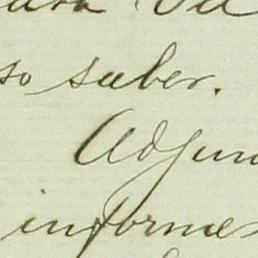 so saber.
Adjun
informe